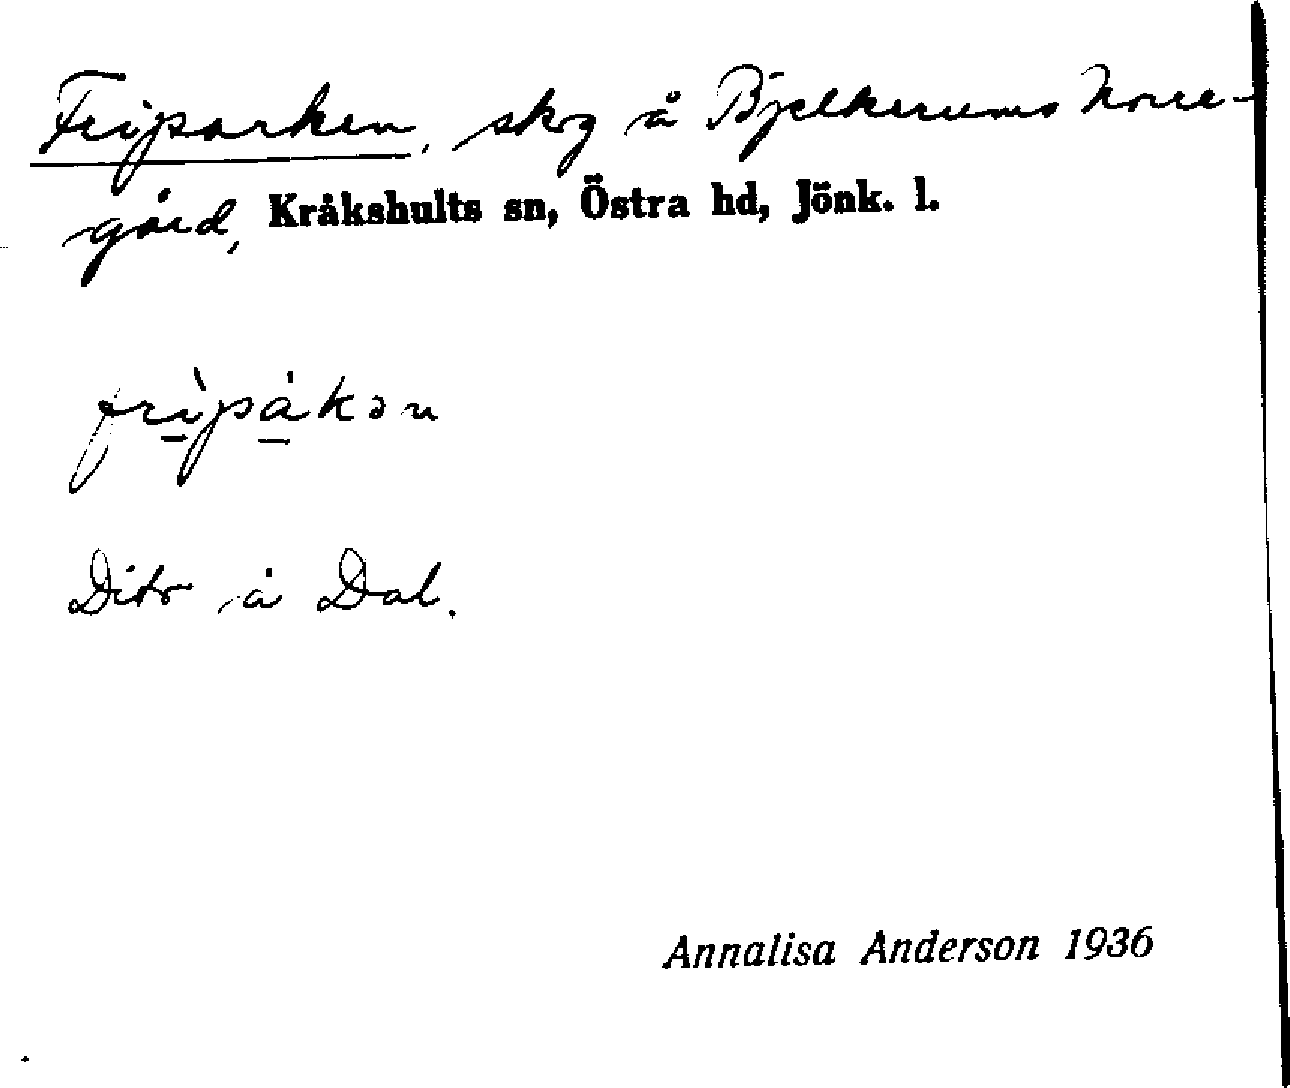 Friparken, skog å Bjelkerums Norre-
gård, Kråkshults sn, Östra hd, Jönk. l.
frìpȧkən
Dito å Dal.
Annalisa Anderson 1936